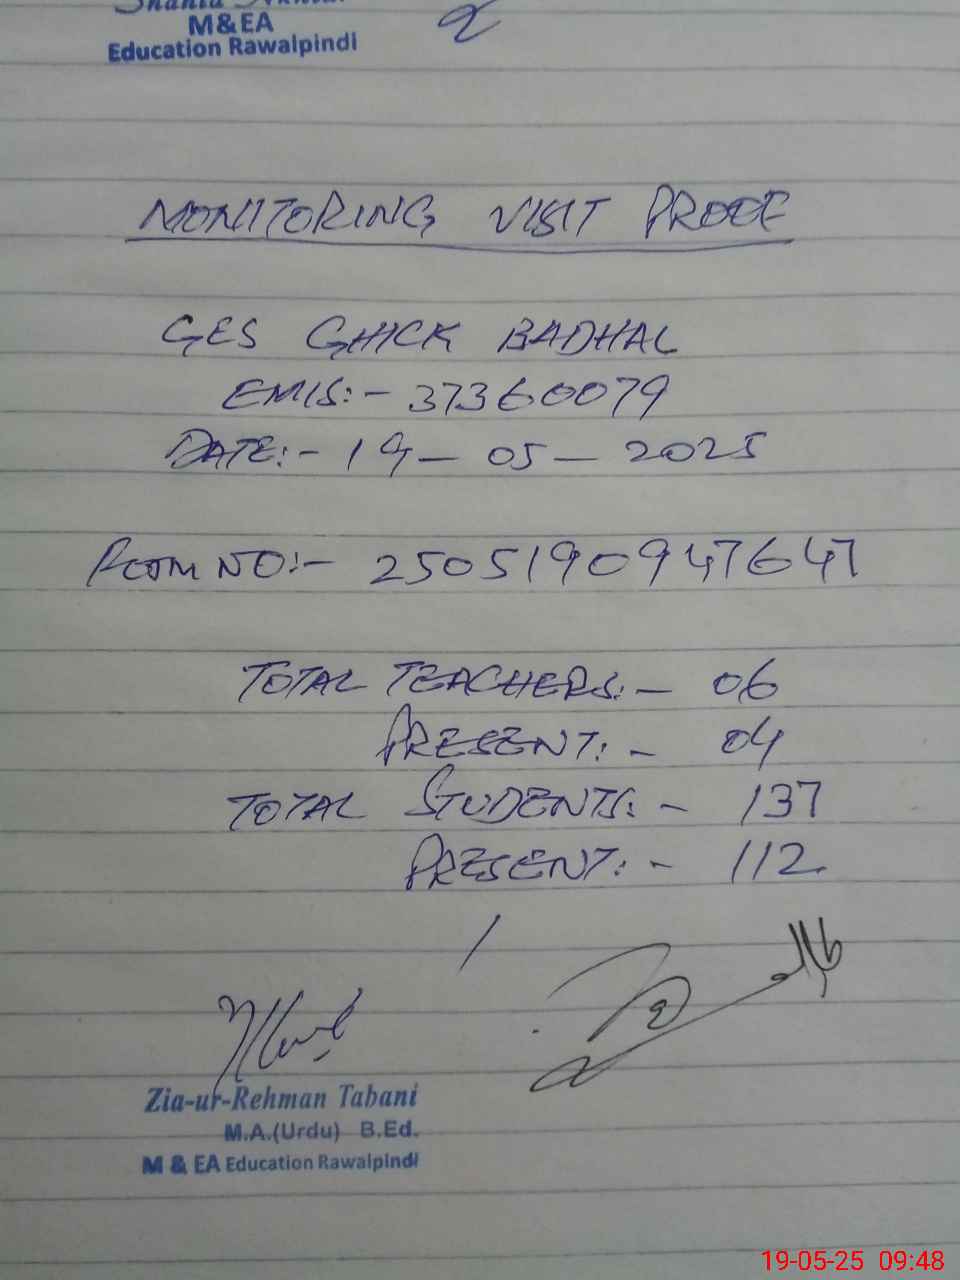 M&EA
Education Rawalpindi
MONITORING VISIT PROOF
GES GHICK BADHAL
EMIS:- 37360079
DATE:- 19-05-2025
ROOM NO:- 2505190947647
TOTAL TEACHERS:- 06
PRESENT:- 04
TOTAL STUDENTS:- 137
PRESENT:- 112
Zia-ur-Rehman Tabani
M.A.(Urdu) B.Ed.
M & EA Education Rawalpindi
19-05-25 09:48